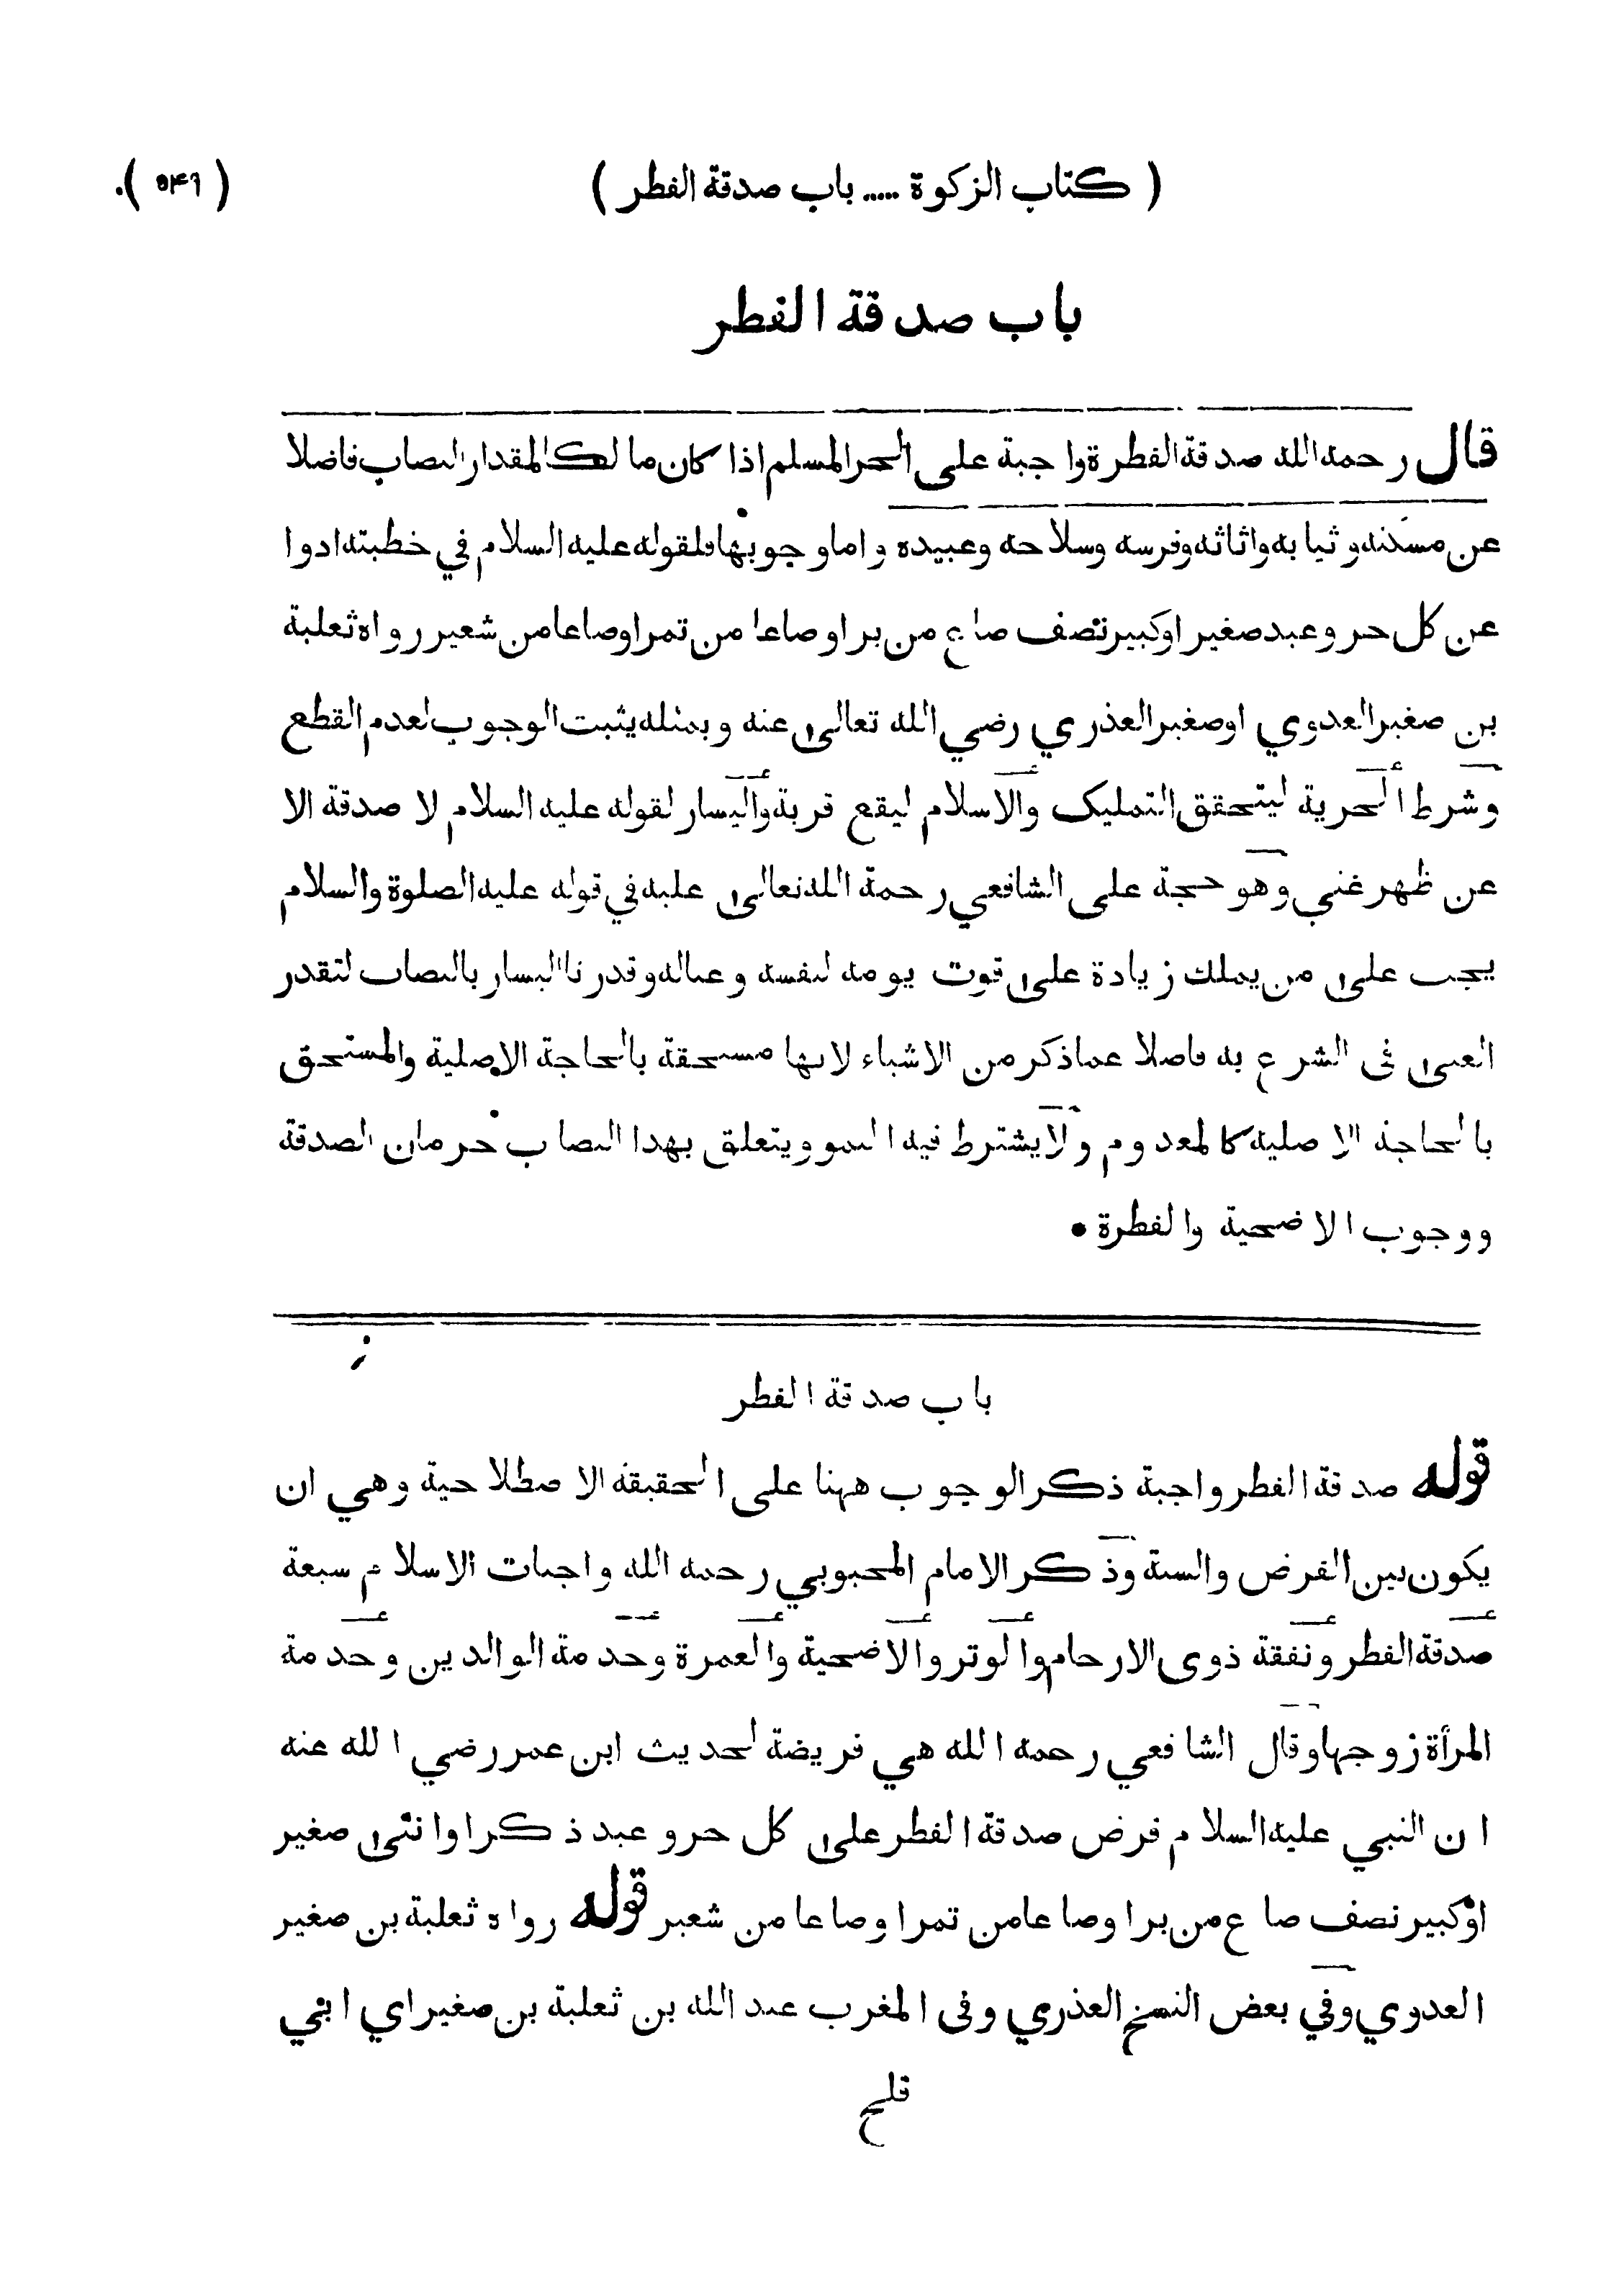 ( كتاب الزكوة ..... باب صدقة الفطر ) ( ٥٤٦ )
باب صدقة الفطر
قال رحمه الله صدقة الفطرة واجبة على الحر المسلم اذا كان مالكا لمقدار النصاب فاضلا
عن مسكنه وثيابه واثاثه وفرسه وسلاحه وعبيده واما وجوبها فلقوله عليه السلام في خطبته ادوا
عن كل حر وعبد صغير او كبير نصف صاع من بر او صاعا من تمر او صاعا من شعير رواه ثعلبة
بن صغير العدوي او صغير العذري رضي الله تعالى عنه وبمثله يثبت الوجوب لعدم القطع
وشرط الحرية ليتحقق التمليك والاسلام ليقع قربة واليسار لقوله عليه السلام لا صدقة الا
عن ظهر غني وهو حجة على الشافعي رحمة الله تعالى عليه في قوله عليه الصلوة والسلام
يجب على من يملك زيادة على قوت يومه لنفسه وعياله وقدرنا اليسار بالنصاب لتقدر
الغنى في الشرع به فاضلا عما ذكر من الاشياء لانها مستحقة بالحاجة الاصلية والمستحق
بالحاجة الاصلية كالمعدوم ولا يشترط فيه النمو ويتعلق بهذا النصاب حرمان الصدقة
ووجوب الاضحية والفطرة •
باب صدقة الفطر
قوله صدقة الفطر واجبة ذكر الوجوب ههنا على الحقيقة الاصطلاحية وهي ان
يكون بين الفرض والسنة وذكر الامام المحبوبي رحمه الله واجبات الاسلام سبعة
صدقة الفطر ونفقة ذوى الارحام والوتر والاضحية والعمرة وخدمة الوالدين وخدمة
المرأة زوجها وقال الشافعي رحمه الله هي فريضة لحديث ابن عمر رضي الله عنه
ان النبي عليه السلام فرض صدقة الفطر على كل حر وعبد ذكر او انثى صغير
او كبير نصف صاع من بر او صاعا من تمر او صاعا من شعير قوله رواه ثعلبة بن صغير
العدوي وفي بعض النسخ العذري وفى المغرب عبد الله بن ثعلبة بن صغير اي ابني